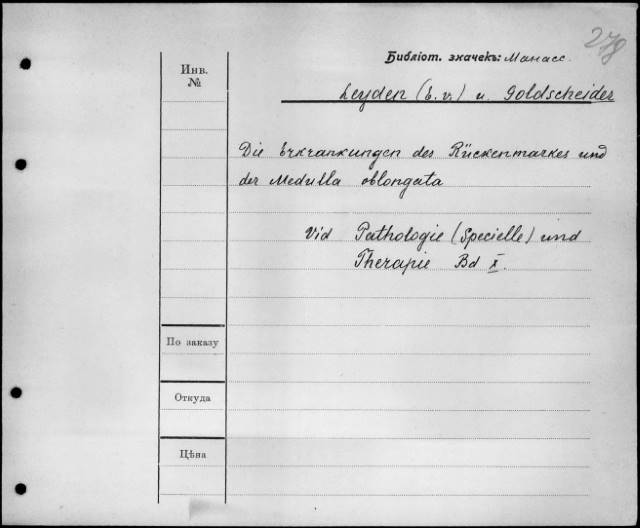 278
Библіот. значекъ: Манасс.
Инв.
№
Leyden (E. v.) u. Goldscheider
Die Erkrankungen des Rückenmarkes und
der Medulla oblongata
Vid Pathologie (Specielle) und
Therapie Bd X.
По заказу
Откуда
Цѣна